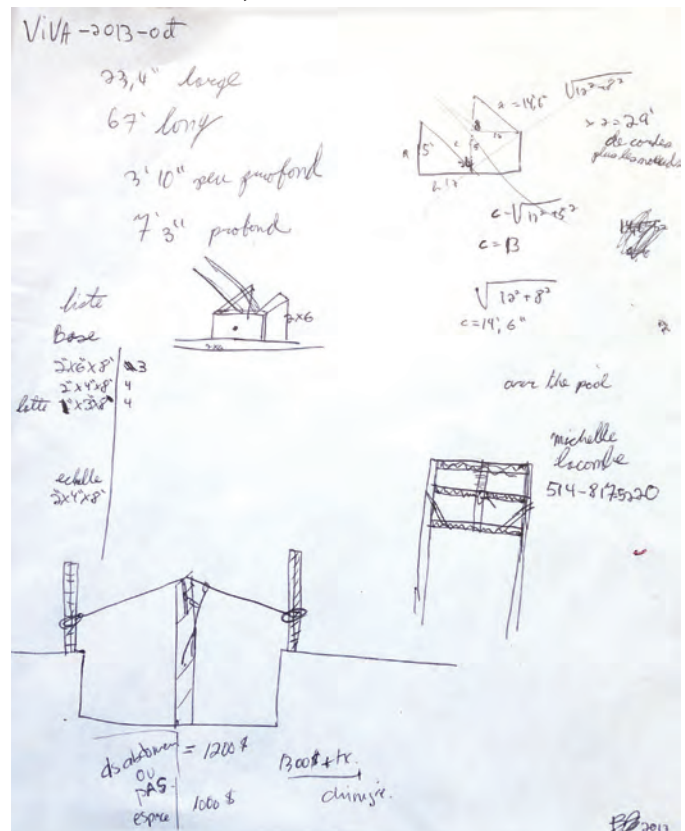 ViVA-2013-oct
23,4" large
67' long
3' 10" peu profond
7' 3" profond
a = 14',6"
√12²+8²
x 2 = 29'
de cordes
plus les noeuds
5'
c = √12²+5²
c = 13
√12²+8²
c = 14', 6"
2x6
liste
Base
2"x6"x8' 3
2"x4"x8' 4
latte 1"x3"x8' 4
echelle
2"x4"x8'
over the pool
michelle
lacombe
514-8175220
= 1200 $
ou
espace 1000 $
1300$ + tx.
chirurgie.
2013